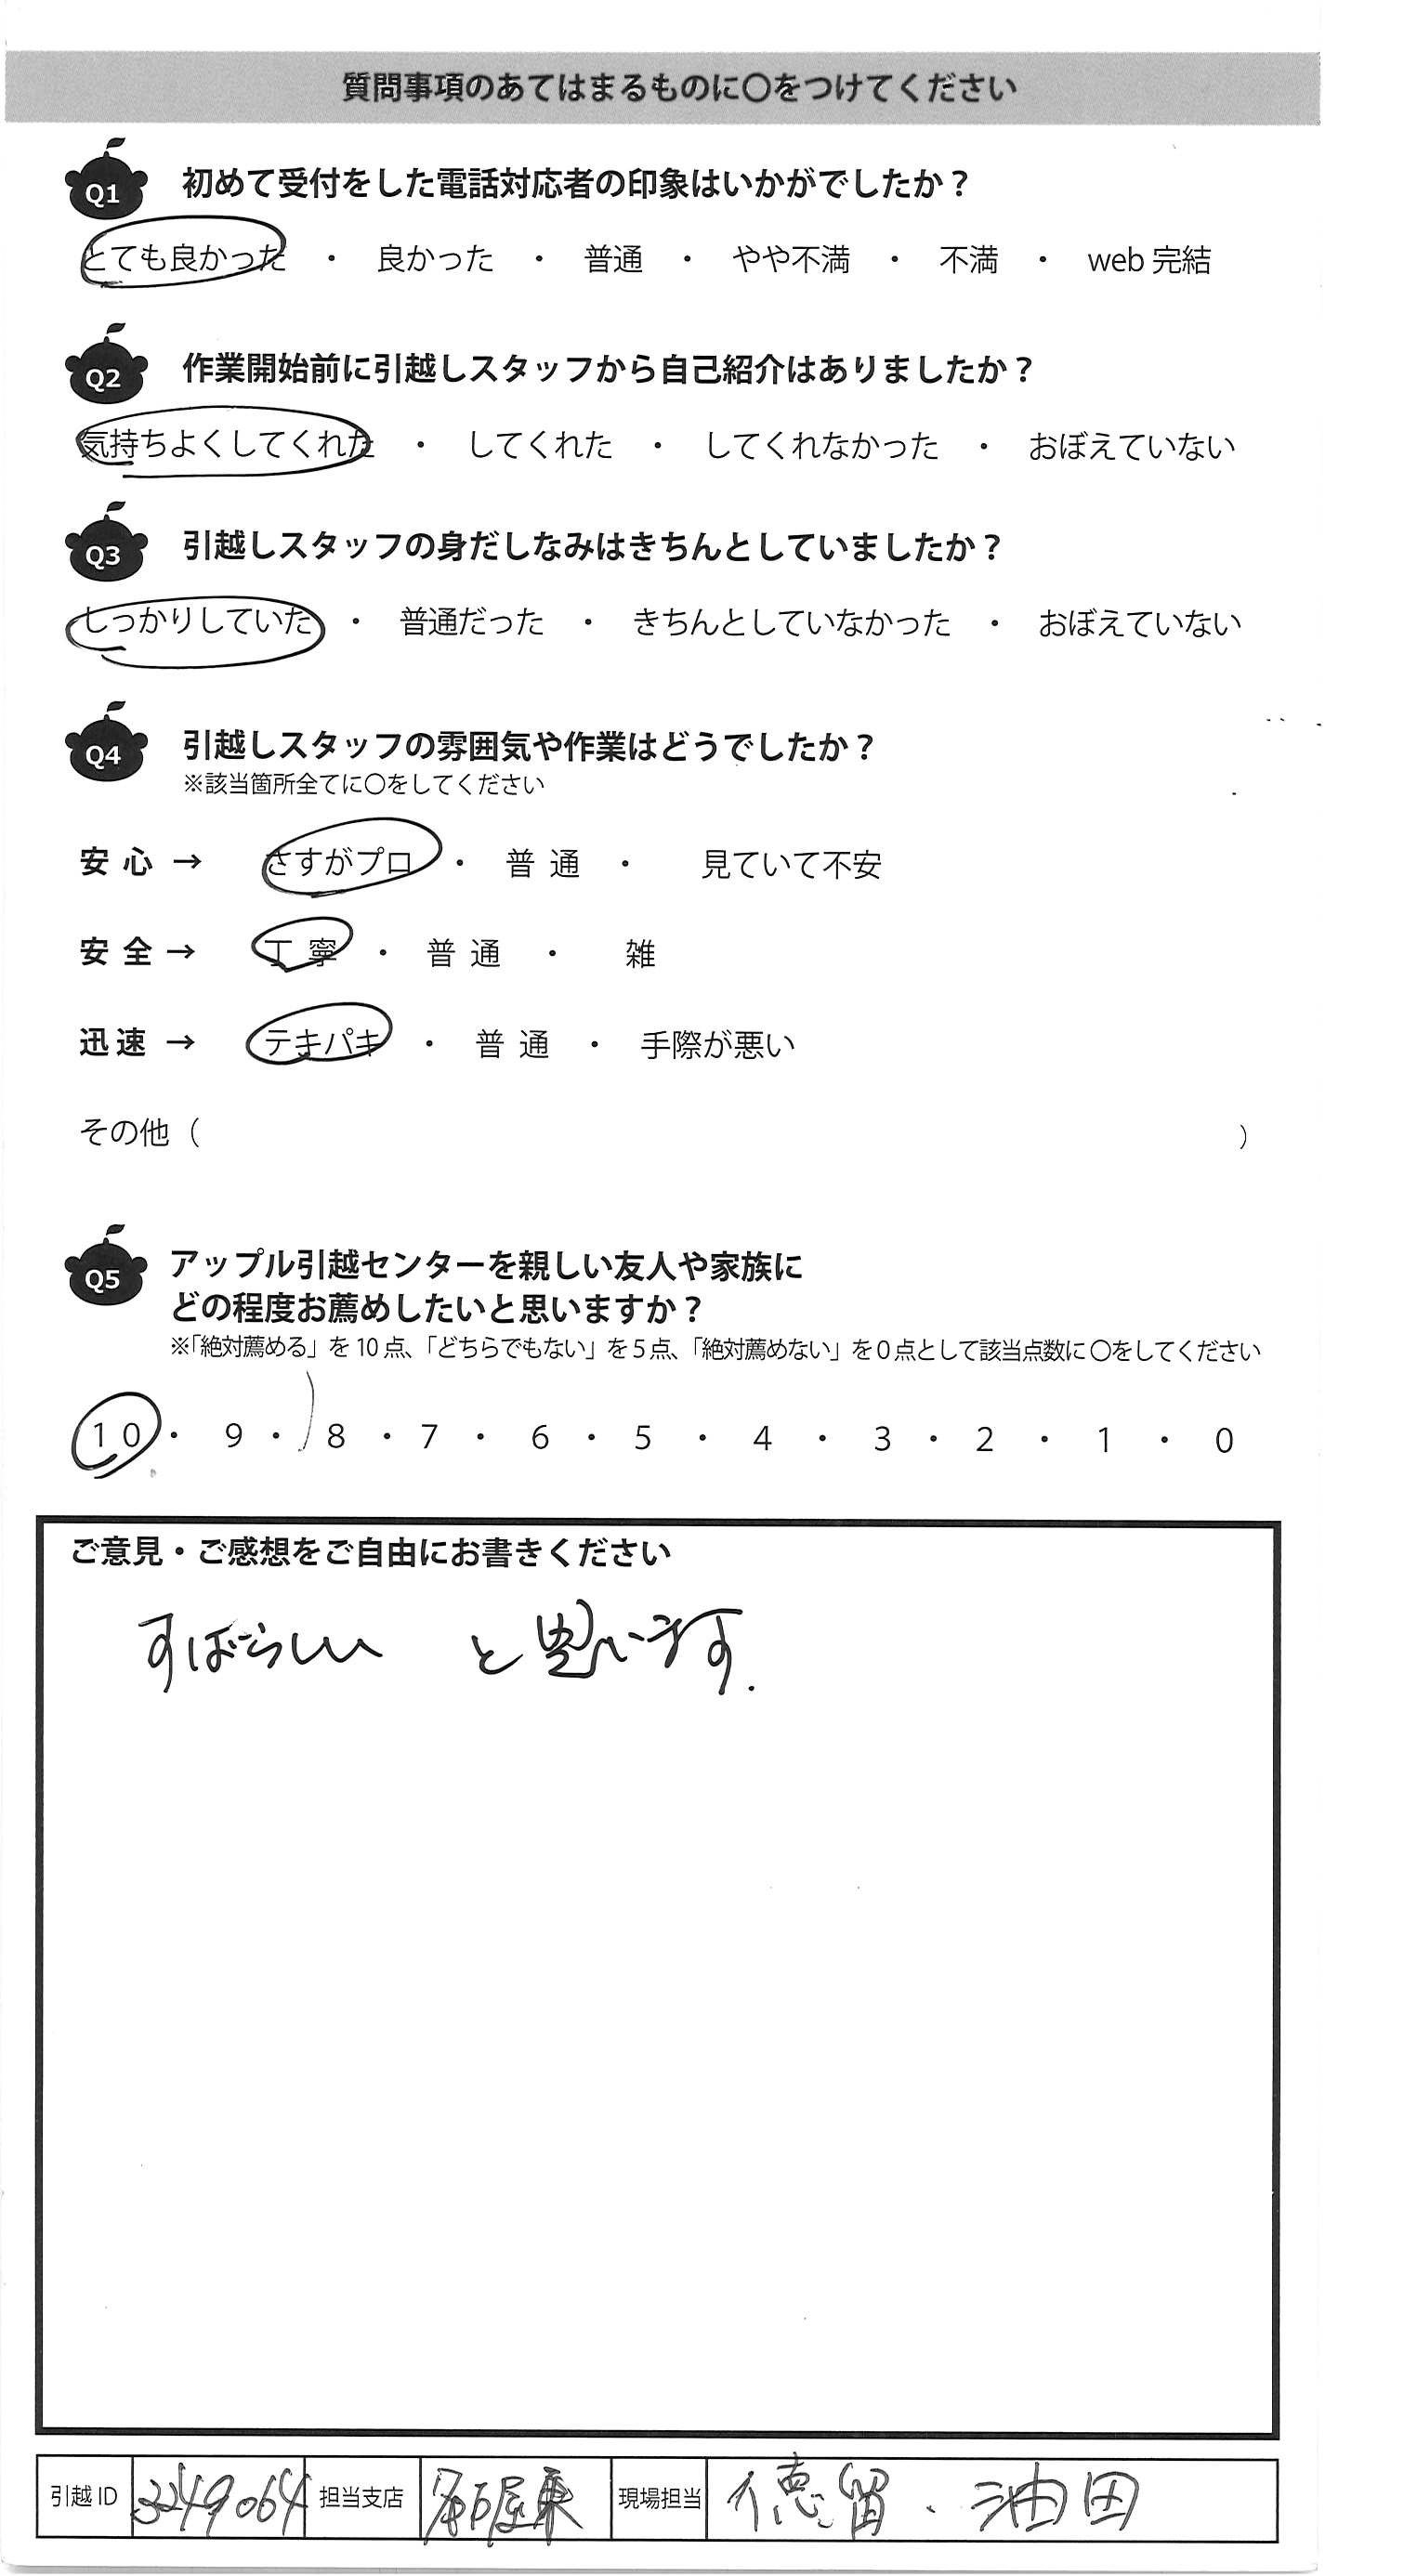 質問事項のあてはまるものに〇をつけてください
Q1 初めて受付をした電話対応者の印象はいかがでしたか？
とても良かった ・ 良かった ・ 普通 ・ やや不満 ・ 不満 ・ web 完結
Q2 作業開始前に引越しスタッフから自己紹介はありましたか？
気持ちよくしてくれた ・ してくれた ・ してくれなかった ・ おぼえていない
Q3 引越しスタッフの身だしなみはきちんとしていましたか？
しっかりしていた ・ 普通だった ・ きちんとしていなかった ・ おぼえていない
Q4 引越しスタッフの雰囲気や作業はどうでしたか？
※該当箇所全てに〇をしてください
安心 → さすがプロ ・ 普通 ・ 見ていて不安
安全 → 丁寧 ・ 普通 ・ 雑
迅速 → テキパキ ・ 普通 ・ 手際が悪い
その他（ ）
Q5 アップル引越センターを親しい友人や家族に
どの程度お薦めしたいと思いますか？
※「絶対薦める」を10点、「どちらでもない」を5点、「絶対薦めない」を0点として該当点数に〇をしてください
10 ・ 9 ・ 8 ・ 7 ・ 6 ・ 5 ・ 4 ・ 3 ・ 2 ・ 1 ・ 0
ご意見・ご感想をご自由にお書きください
すばらしい と思います.
引越ID 3249064 担当支店 名古屋東 現場担当 徳留・油田